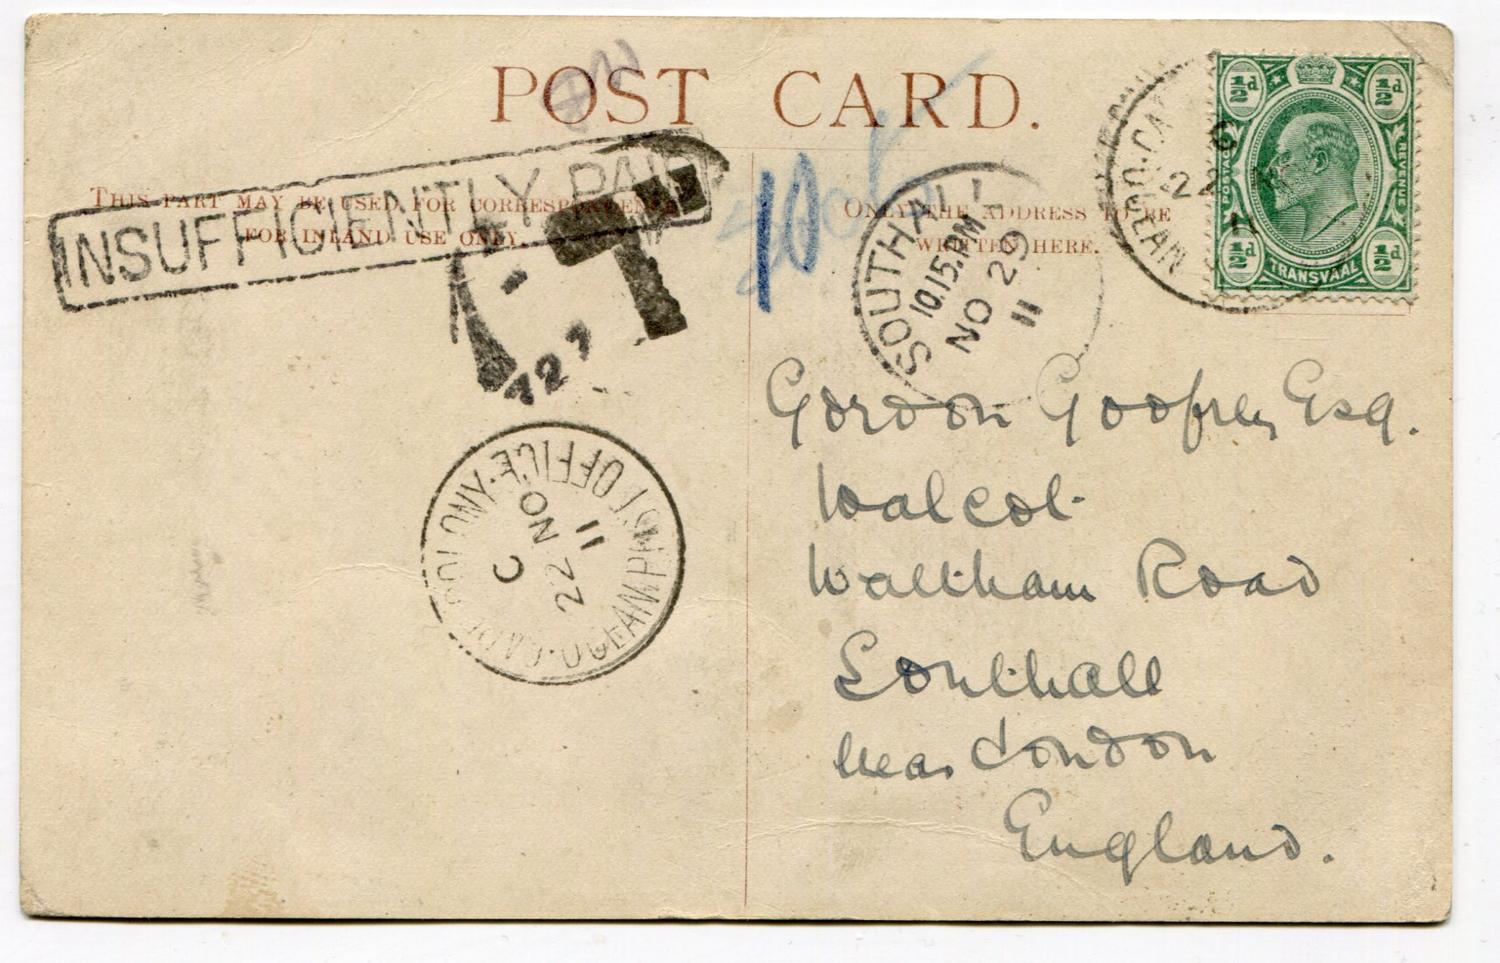 POST CARD.
THIS PART MAY BE USED FOR CORRESPONDENCE
FOR INLAND USE ONLY.
INSUFFICIENTLY PAID
T
727
10
ONLY THE ADDRESS TO BE
WRITTEN HERE.
SOUTHALL
10.15.PM
NO 29
11
½d ½d
POSTAGE REVENUE
TRANSVAAL
½d ½d
22
11
OCEAN
OCEAN POST OFFICE
C
22 NO
11
Gordon Goodfrey Esq.
Walcot
Waltham Road
Southall
near London
England.